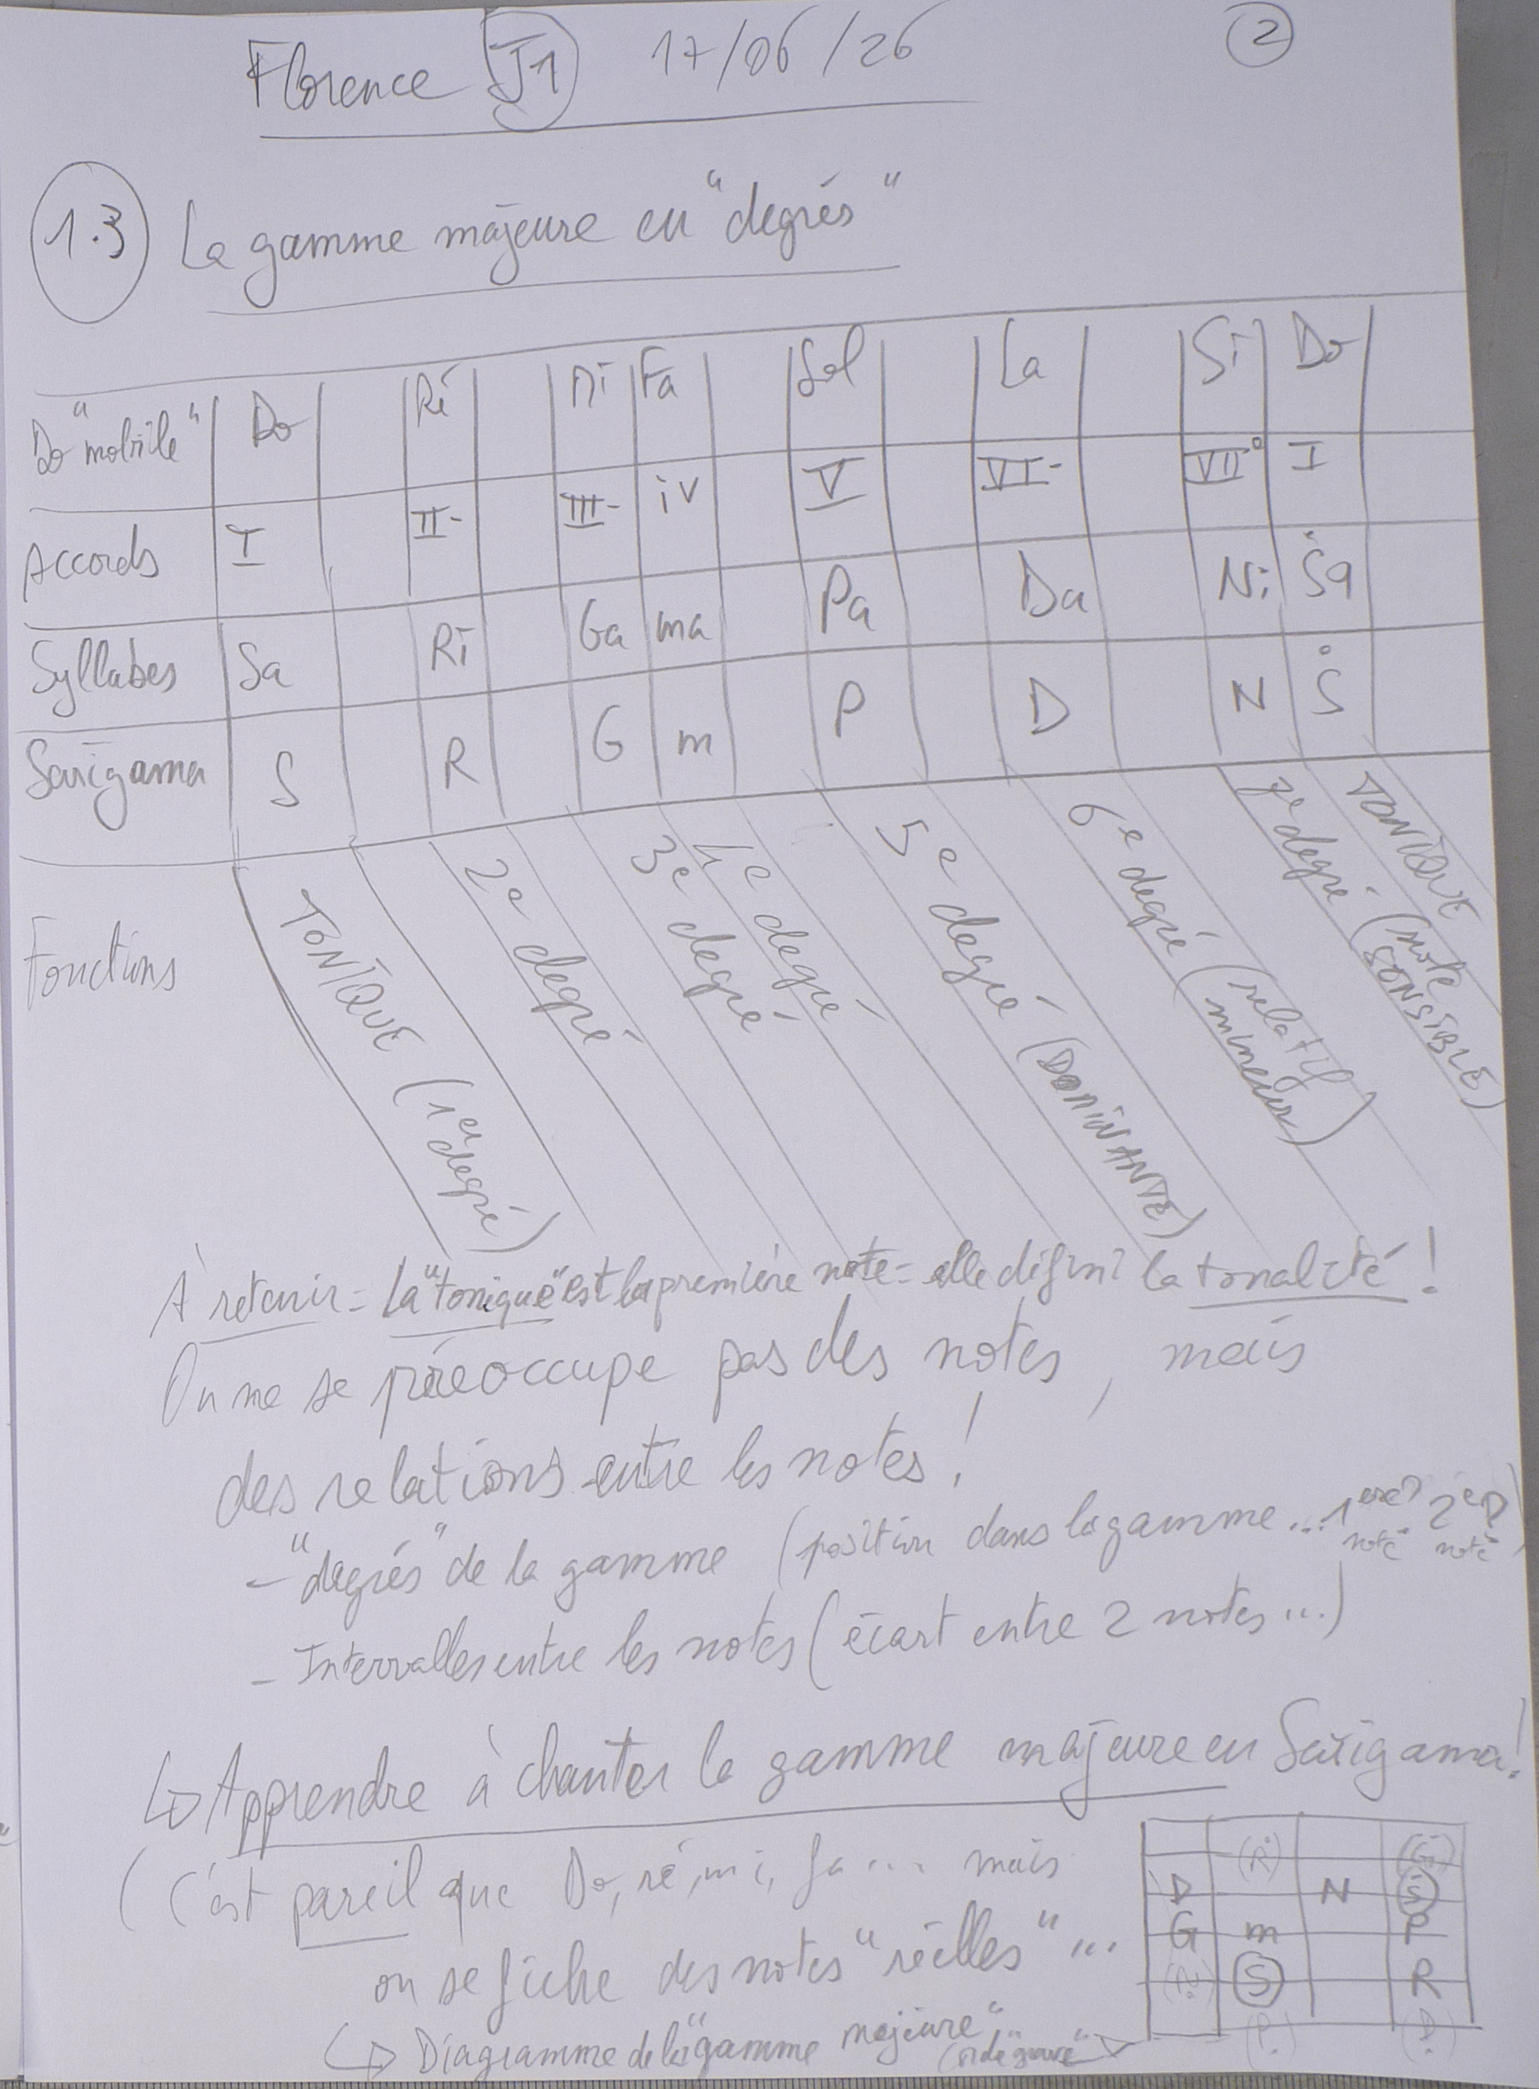 Florence J1 17/06/26 2
1.3 La gamme majeure en "degrés"
Do "mobile" Do Ré Mi Fa Sol La Si Do
Accords I II- III- iV V VI- VII° I
Syllabes Sa Ri Ga ma Pa Da Ni Ṡa
Sarigama S R G m P D N Ṡ
Fonctions
TONIQUE (1er degré)
2e degré
3e degré
4e degré
5e degré (DOMINANTE)
6e degré (relatif mineur)
7e degré (note SENSIBLE)
TONIQUE
À retenir = La "tonique" est la première note = elle défini la tonalité !
On ne se préoccupe pas des notes, mais
des relations entre les notes !
- "degrés" de la gamme (position dans la gamme ... 1ère note 2e note)
- Intervalles entre les notes (écart entre 2 notes ...)
↳ Apprendre à chanter la gamme majeure en Sarigama !
(C'est pareil que Do, ré, mi, fa ... mais
on se fiche des notes "réelles" ...
↳ Diagramme de la "gamme majeure"
(Ṙ) (Ġ)
D N Ṡ
G m P
S R
(P) (D)